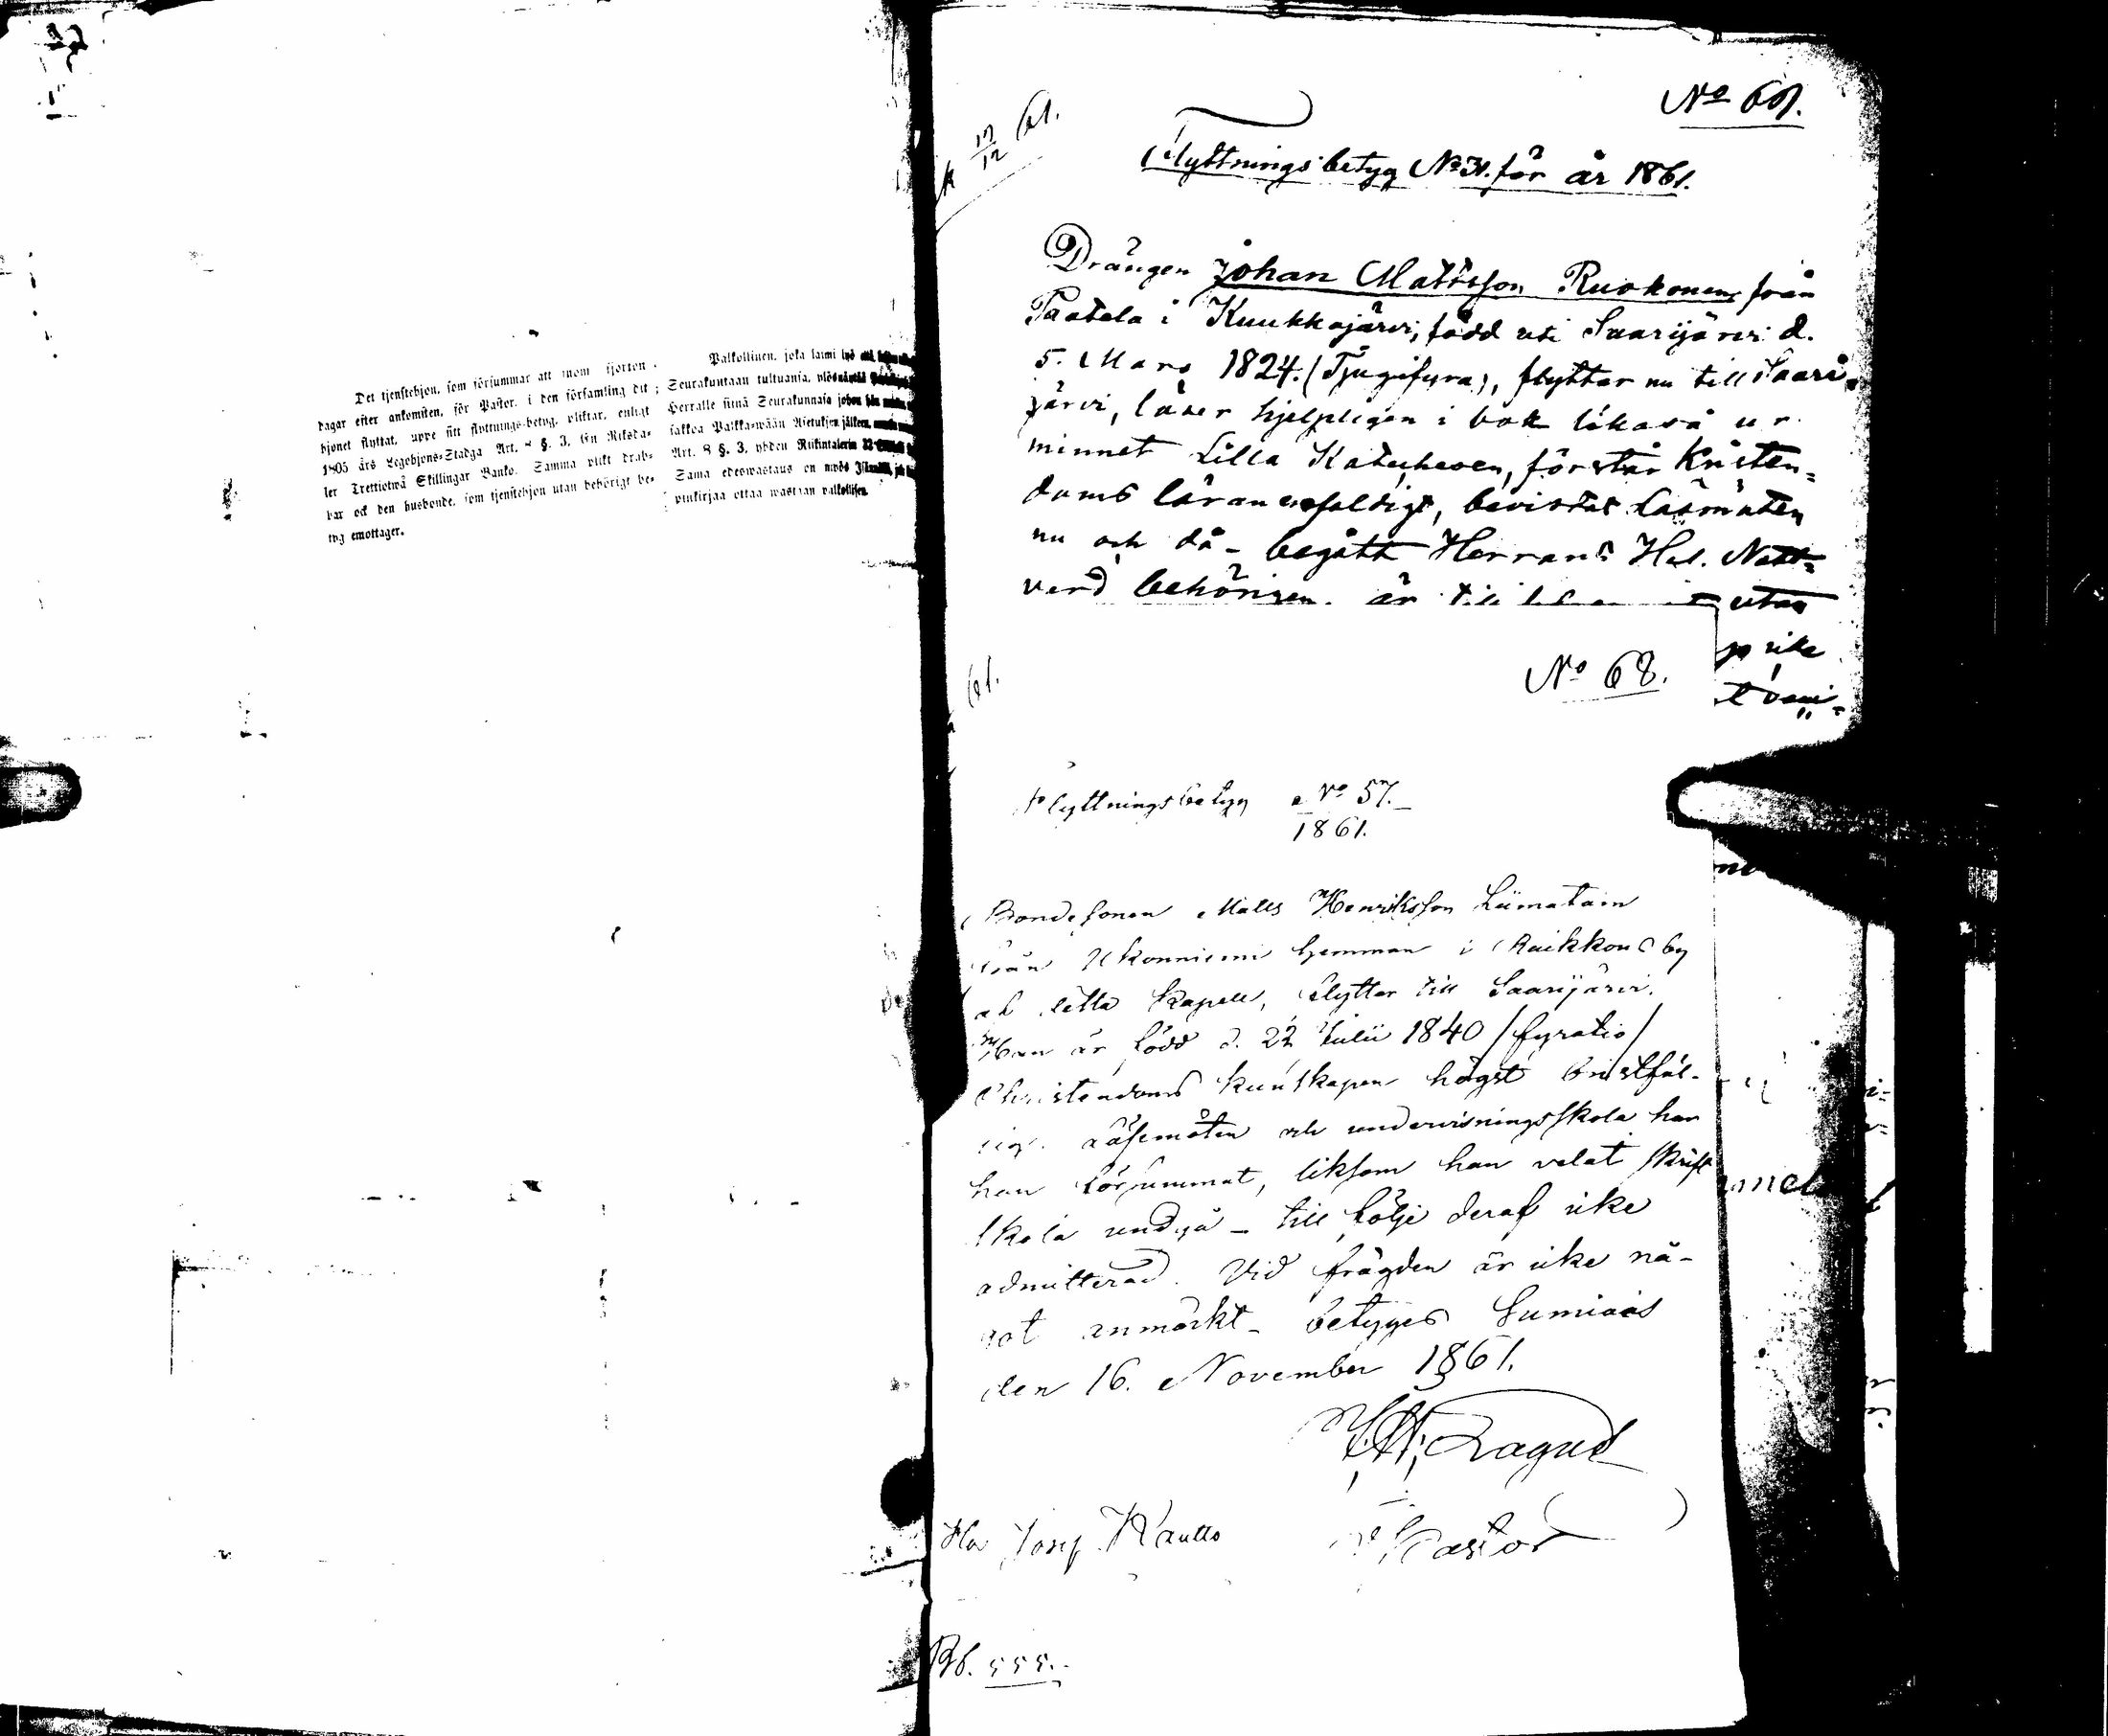 Det tjenstehjon, som försummar att inom fjorton
dagar efter ankomsten, för Pastor, i den församling dit
hjonet flyttat, uppe sitt flyttnings-betyg, pliktar, enligt
1805 års Legohjons-Stadga Art. 8 §. 3, En Riksda-
ler Trettiotwå Skillingar Banko. Samma plikt drab-
bar ock den husbonde, som tjenstehjon utan behörigt be-
tyg emottager.
Palkollinen, joka laimi
Seurakuntaan tultuansa,
Herralle siinä Seurakunnasa
sakkoa Palkka-wään Asetuksen jälkeen,
Art. 8 §. 3, yhden Riikintalerin 32
Sama edeswastaus on myös
pinkirjaa ottaa wastaan palkollisen.
17/12 61.
No 67.
Flyttningsbetyg No 31. för år 1861.
Drängen Johan Mattsson Ruokonen från
Paatela i Kuukkajärvi, född uti Saarijärvi d.
5. Mars 1824. (Tjugufyra), flyttar nu till Saari-
järvi, läser hjelpligen i bok likaså ur
minnet Lilla Katechesen, förstår Kristen-
doms läran enfaldigt, bevistat Läsmöten
nu och då - begått Herrans Hel. Natt-
vard behörigen. är till utan
61.
No 68.
Flyttningsbetyg No 57.
1861.
Bondesonen Matts Henriksson Liimatain
från Ukonniemi hemman i Raikkous by
af detta Kapell, flyttar till Saarijärvi.
Han är född d. 22 Julii 1840 /fyratio/
Christendoms kunskapen högst bristfäl-
lig. Läsemöten och undervisningsskola har
han försummat, liksom han velat skrift
skola undgå - till följe deraf icke
admitterad. Vid frägden är icke nå-
got anmärkt - betygas Sumiais
den 16. November 1861.
Lagus
Pastor
Josef Kautto
Pb. 555.